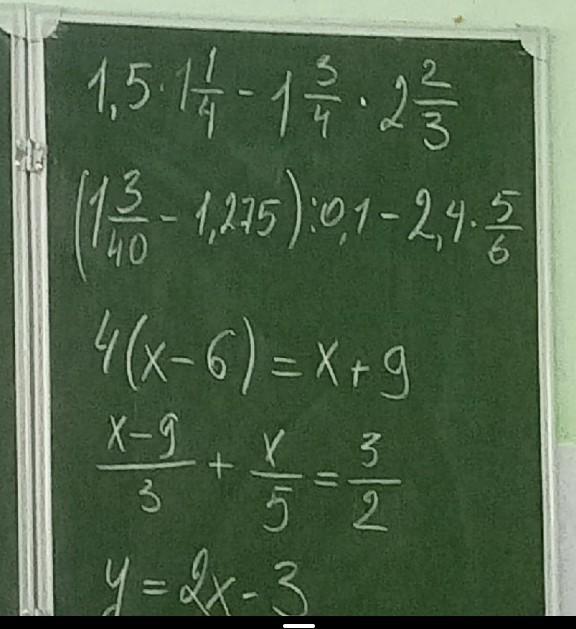 1,5 · 1 1/4 - 1 3/4 · 2 2/3
(1 3/40 - 1,275) : 0,1 - 2,4 · 5/6
4(x - 6) = x + 9
(x - 9)/3 + x/5 = 3/2
y = 2x - 3